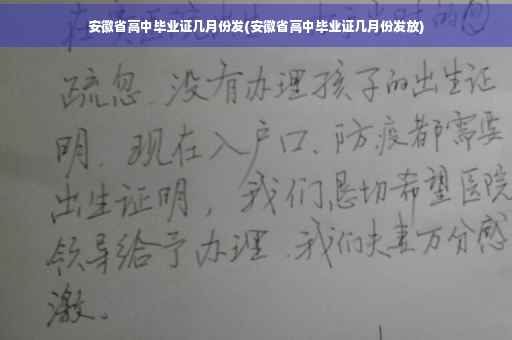 安徽省高中毕业证几月份发(安徽省高中毕业证几月份发放)
疏忽.没有办理孩子的出生证
明.现在入户口、防疫都需要
出生证明,我们恳切希望医院
领导给予办理.我们夫妻万分感
激。